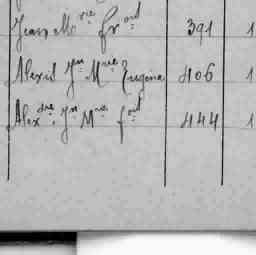 Jean M^rie fr^ord 391 1
Alexis J^n M^rie Eugène 406 1
Alex^dre J^n M^rie f^ord 444 1